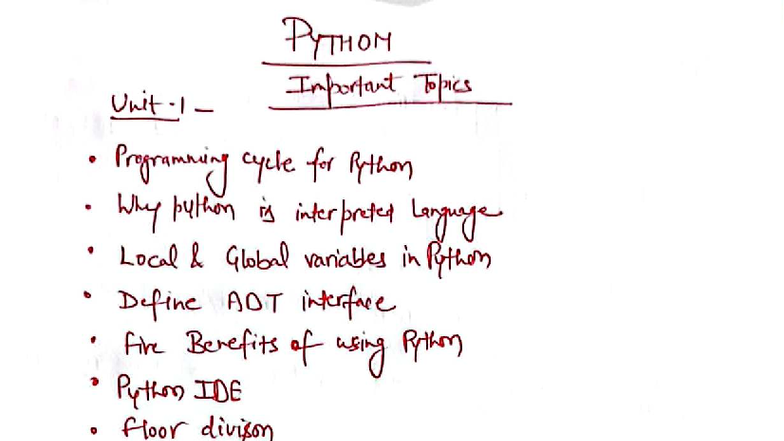 PYTHON
Important Topics
Unit-1 -
• Programming cycle for Python
• Why python is interpreted Language
• Local & Global variables in Python
• Define ADT interface
• Five Benefits of using Python
• Python IDE
• floor divison